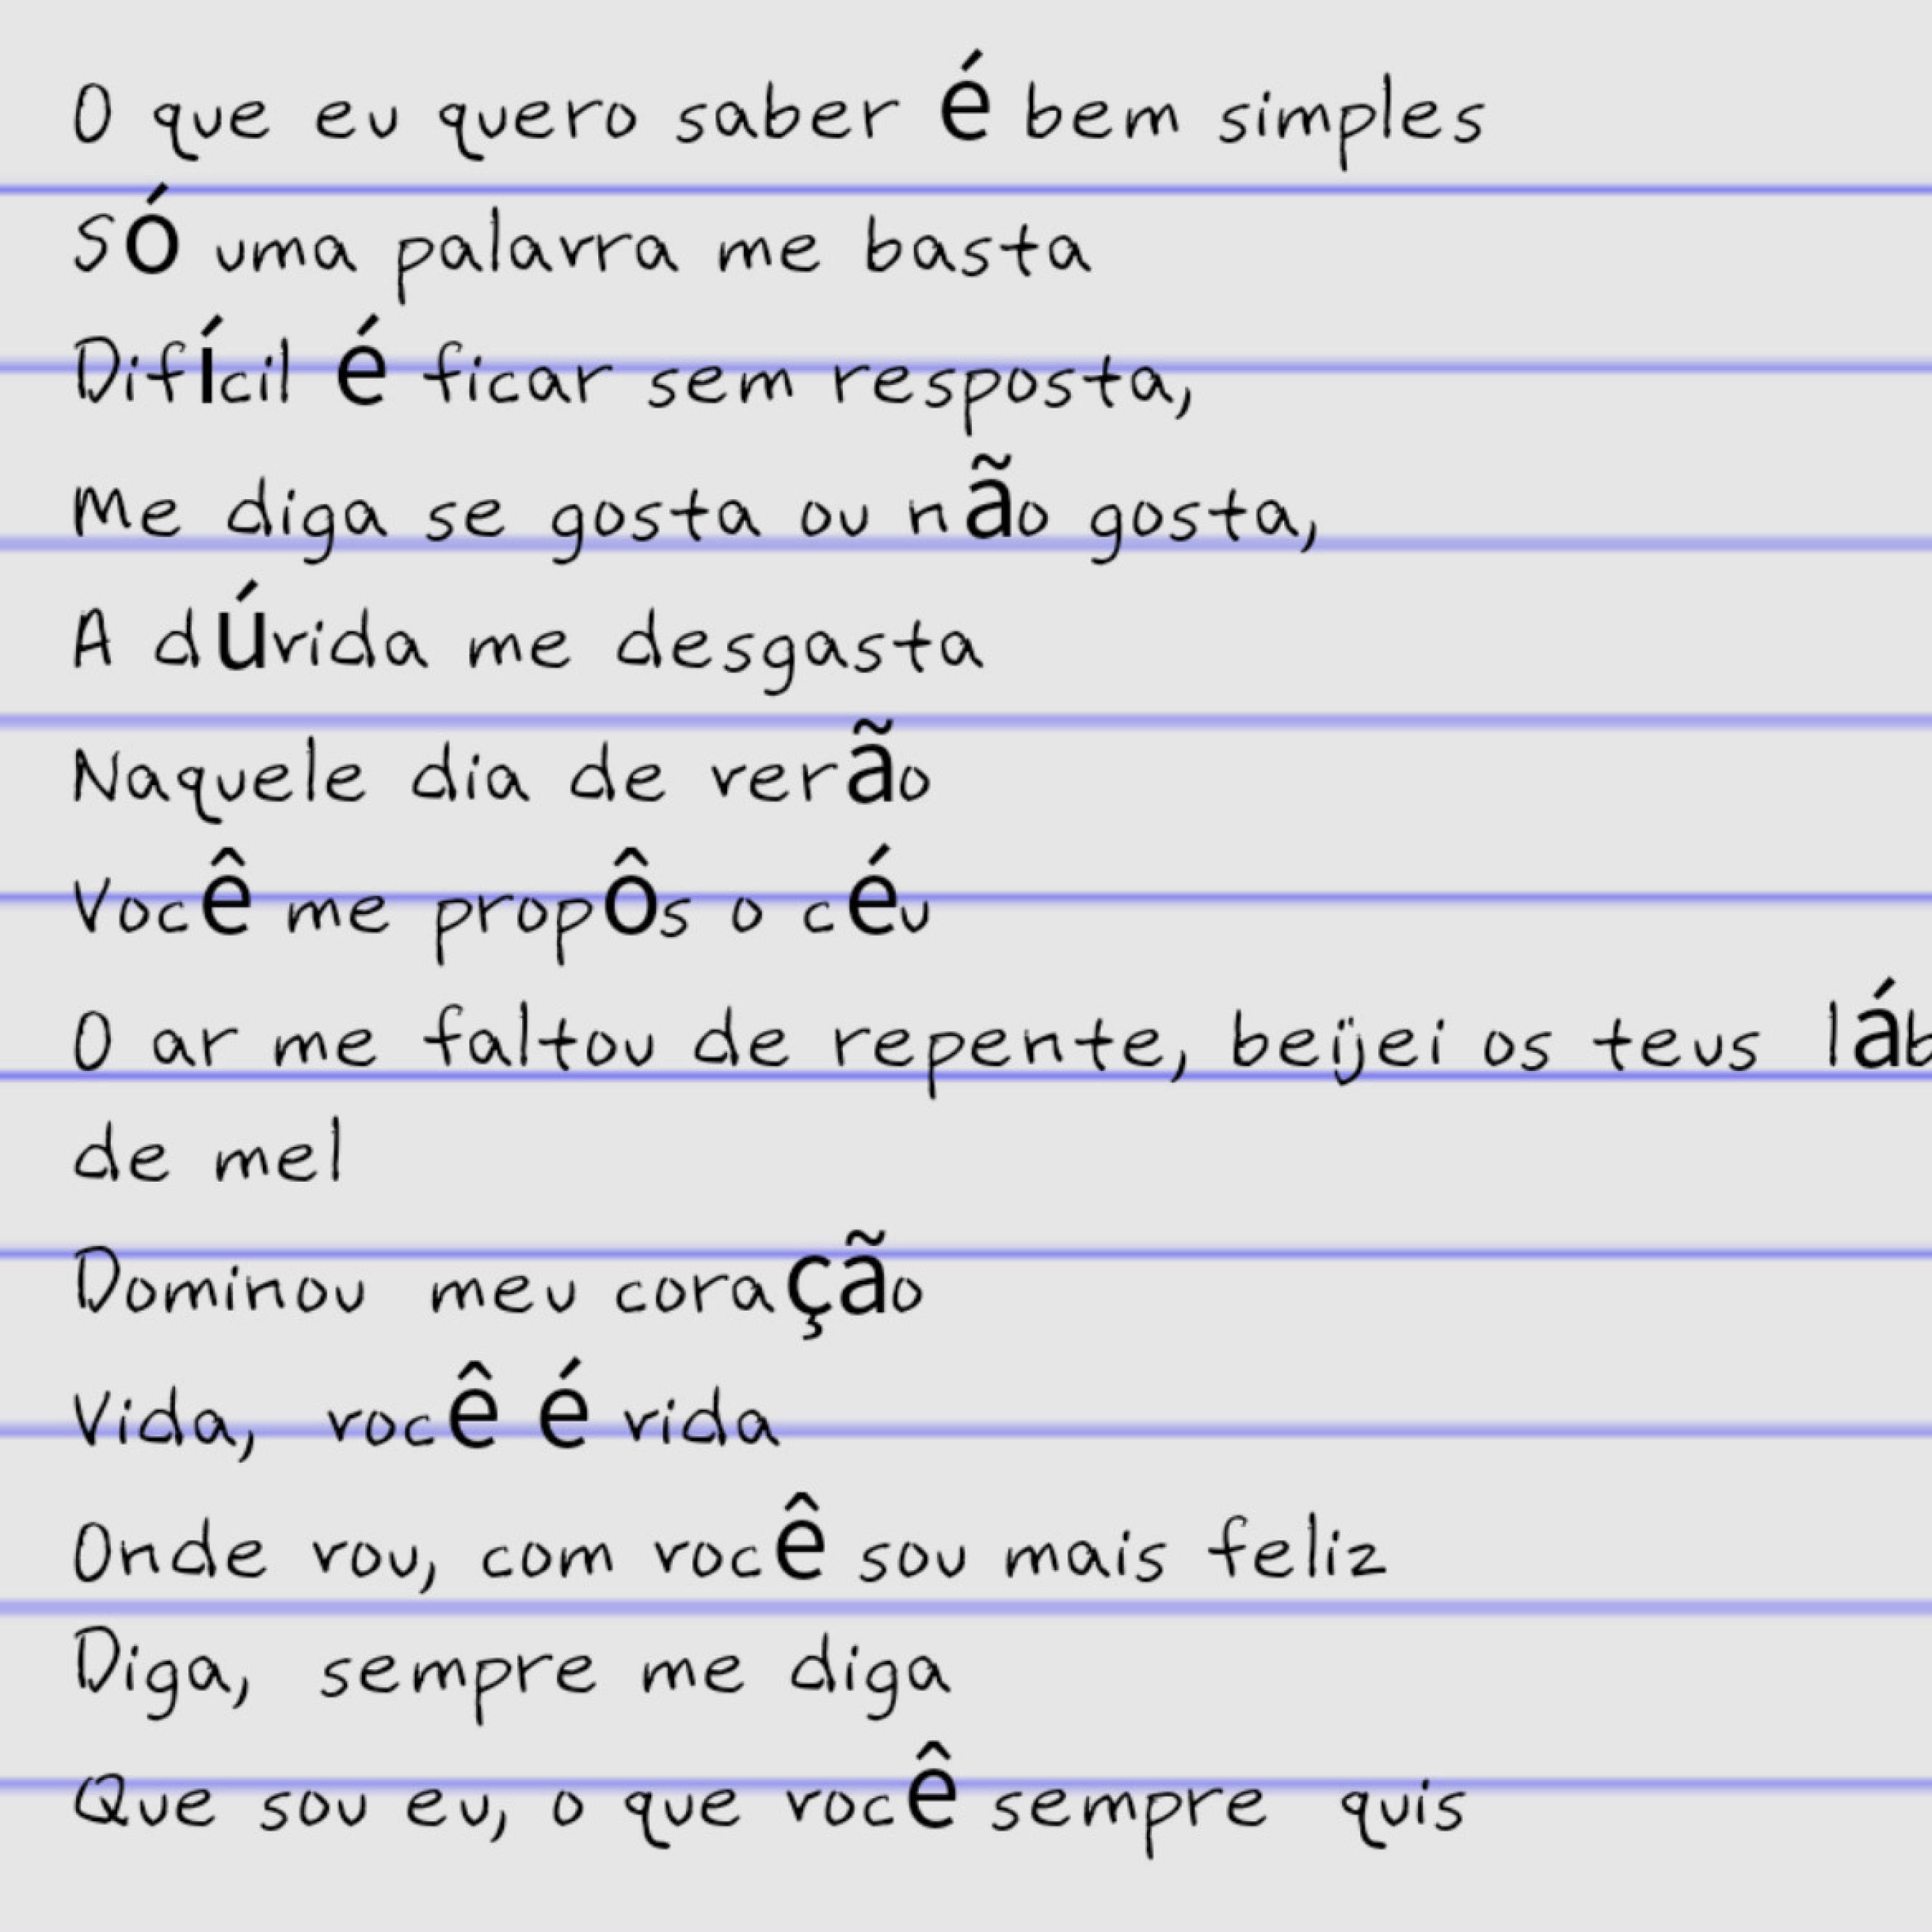 O que eu quero saber é bem simples
Só uma palavra me basta
Difícil é ficar sem resposta,
Me diga se gosta ou não gosta,
A dúvida me desgasta
Naquele dia de verão
Você me propôs o céu
O ar me faltou de repente, beijei os teus láb
de mel
Dominou meu coração
Vida, você é vida
Onde vou, com você sou mais feliz
Diga, sempre me diga
Que sou eu, o que você sempre quis